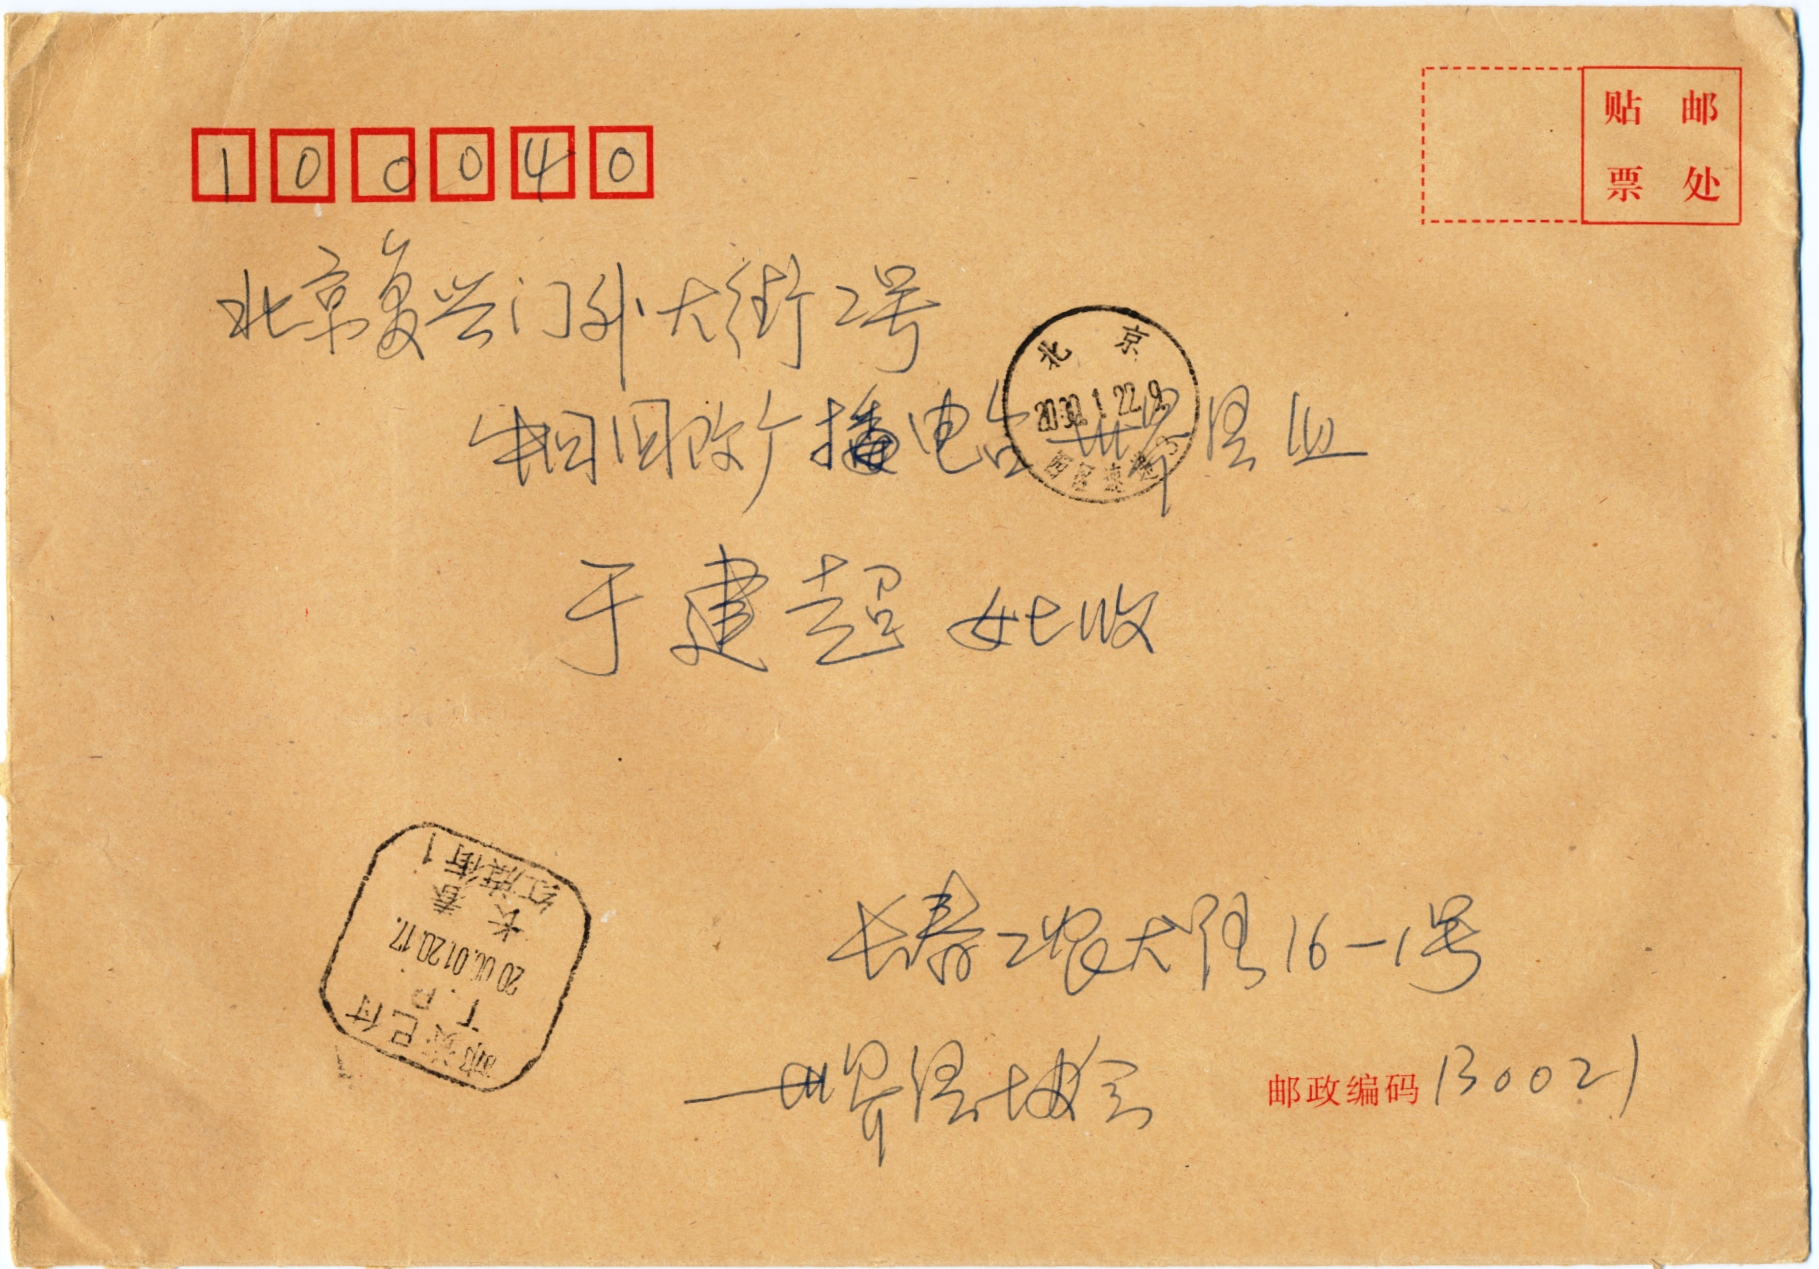 100040
邮
贴
处
票
北京复兴门外大街2号
中国国际广播电台世界语组
北京
1.22.9
于建超 收
长春
红旗街1
01.20.17
T.P
邮资已付
长春工农大路16-1号
世界语协会
邮政编码130021